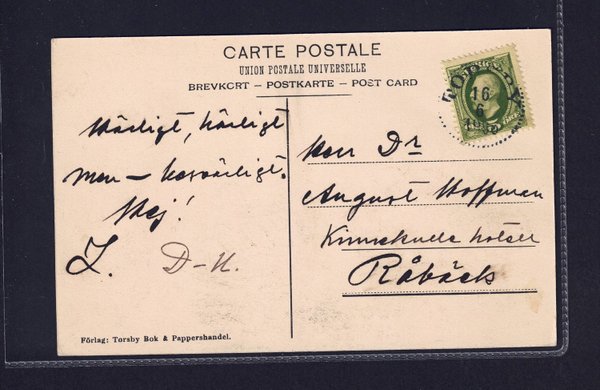 CARTE POSTALE
UNION POSTALE UNIVERSELLE
BREVKORT — POSTKARTE — POST CARD
16
6
Härligt, härligt
men — besvärligt.
Hej!
L. D-U.
Herr Dr
August Hoffman
Kinnekulle hotell
Råbäck
Förlag: Torsby Bok & Pappershandel.